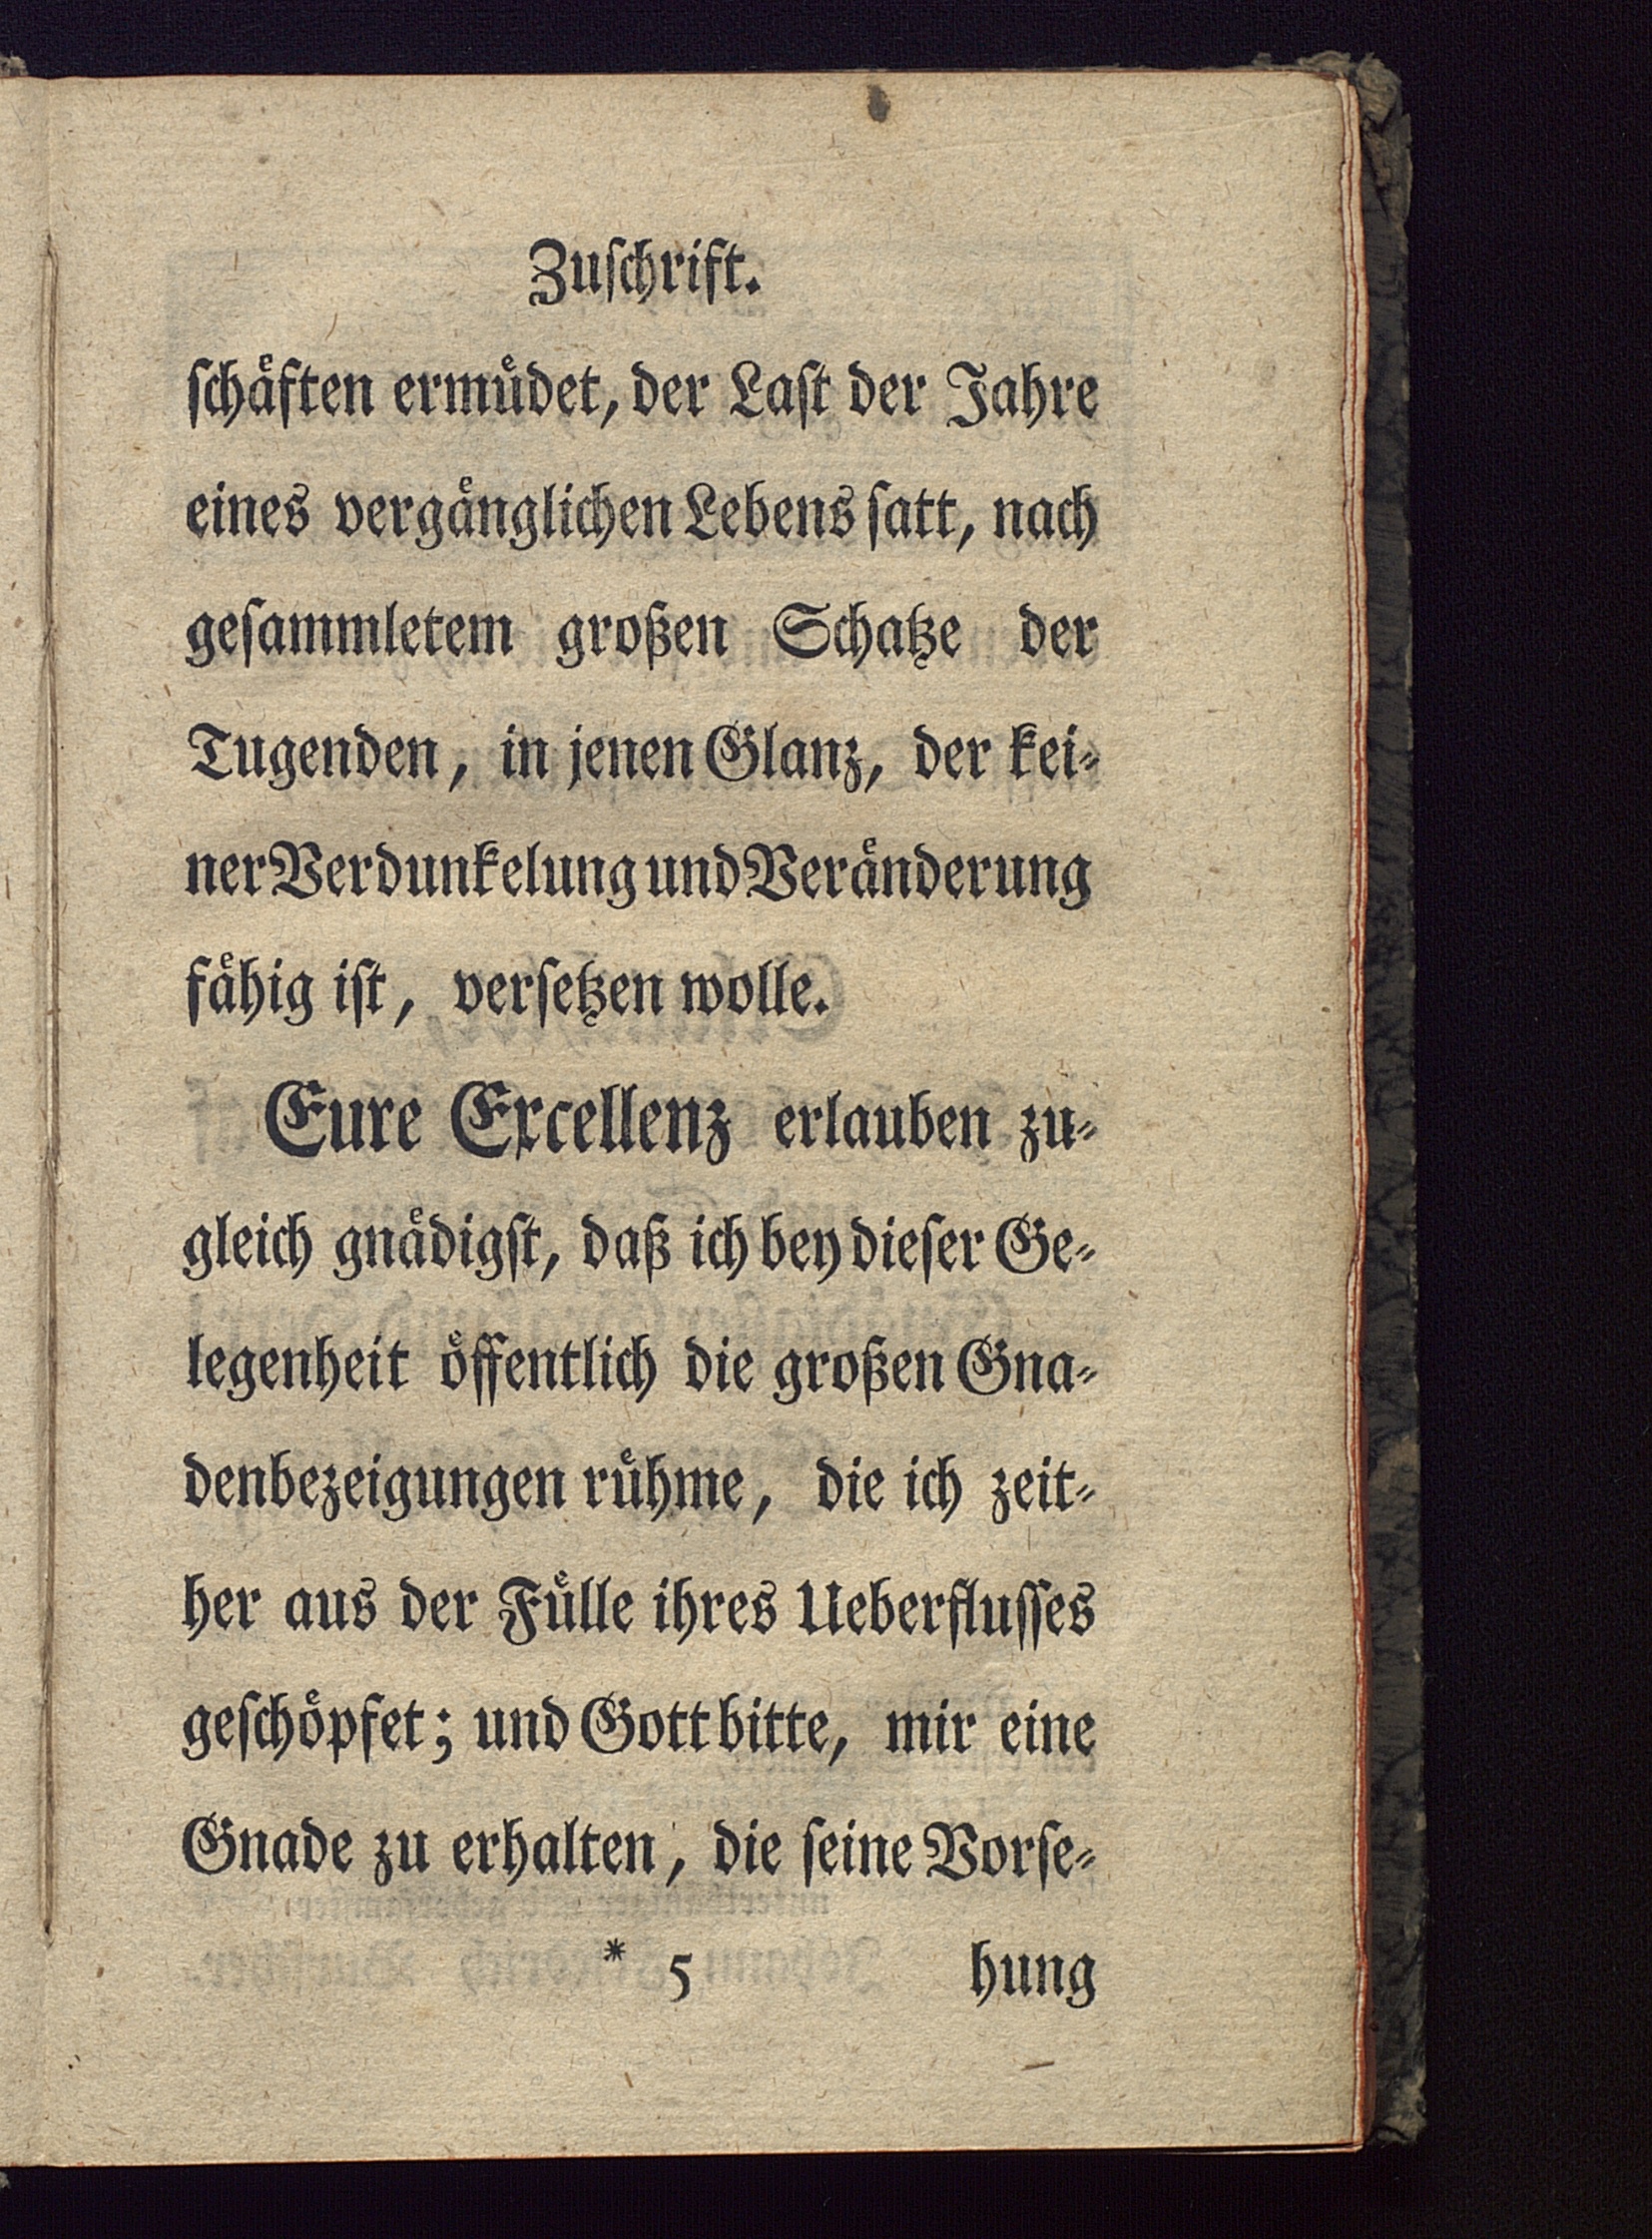 Zuſchrift.
ſchaͤften ermuͤdet, der Laſt der Jahre
eines vergaͤnglichen Lebens ſatt, nach
geſammletem großen Schatze der
Tugenden, in jenen Glanz, der kei⸗
ner Verdunkelung und Veraͤnderung
faͤhig iſt, verſetzen wolle.
Eure Excellenz erlauben zu⸗
gleich gnaͤdigſt, daß ich bey dieſer Ge⸗
legenheit oͤffentlich die großen Gna⸗
denbezeigungen ruͤhme, die ich zeit⸗
her aus der Fuͤlle ihres Ueberfluſſes
geſchoͤpfet; und Gott bitte, mir eine
Gnade zu erhalten, die ſeine Vorſe⸗
* 5 hung